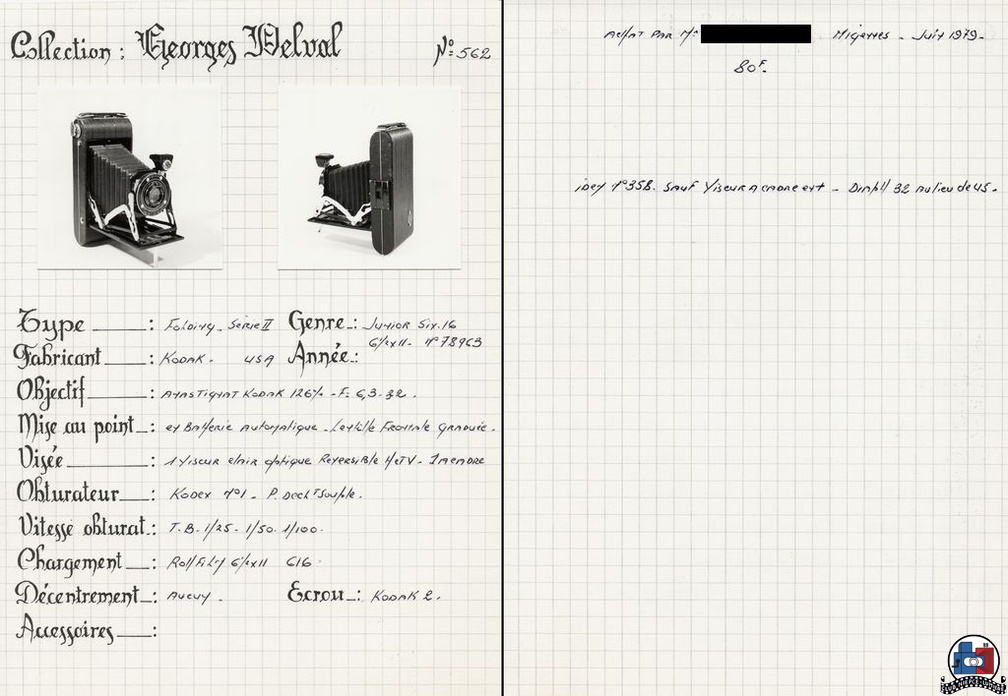 Collection : Georges Delval N° 562
Type : Folding - Série II Genre : Junior Six.16
6½x11 - N° 78963
Fabricant : Kodak - USA Année :
Objectif : Anastigmat Kodak 126% - F: 6,3-32.
Mise au point : en Batterie Automatique - Lentille Frontale Graduée.
Visée : 1 Viseur clair optique Reversible H et V - 1 à cadre
Obturateur : Kodex N°1 - P. Decht Souple.
Vitesse obturat. : T. B. 1/25 - 1/50. 1/100.
Chargement : Roll Film 6½x11 616.
Décentrement : Aucun. Ecrou : Kodak 2.
Accessoires :
Achat par Mr Migennes - Juin 1979.
80F.
idem N° 358. Sauf Viseur à cadre ext - Diaph 32 au lieu de 45.